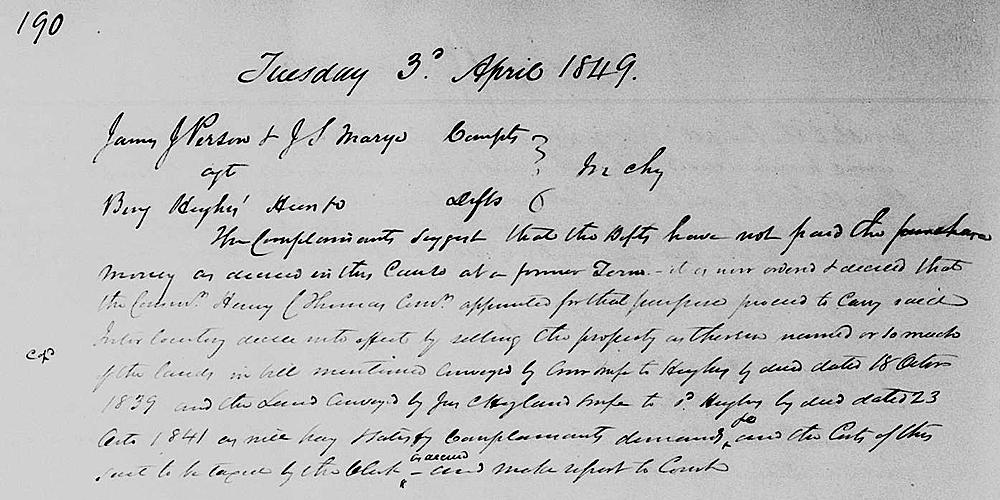 190
Tuesday 3d. April 1849.
James J Person & J S Mayo Compts
agt In chy
Benj Hughs' Defts
The Complainants suggest that the Defts have not paid the purchase
money as decreed in this Cause at a former Term - it is now ordered & decreed that
the Henry C Thomas appointed for that purpose proceed to Carry said
Interlocutory decree into effect by selling the property as therein named or so much
of the lands in bill mentioned Conveyed by to Hughs by deed dated 18
1839 and the Land Conveyed by Jas C to sd. Hughs by deed dated 23
Octo 1841 as will pay & satisfy Complainants demands, and the Costs of this
suit to be taxed by the Clerk - and make report to Court